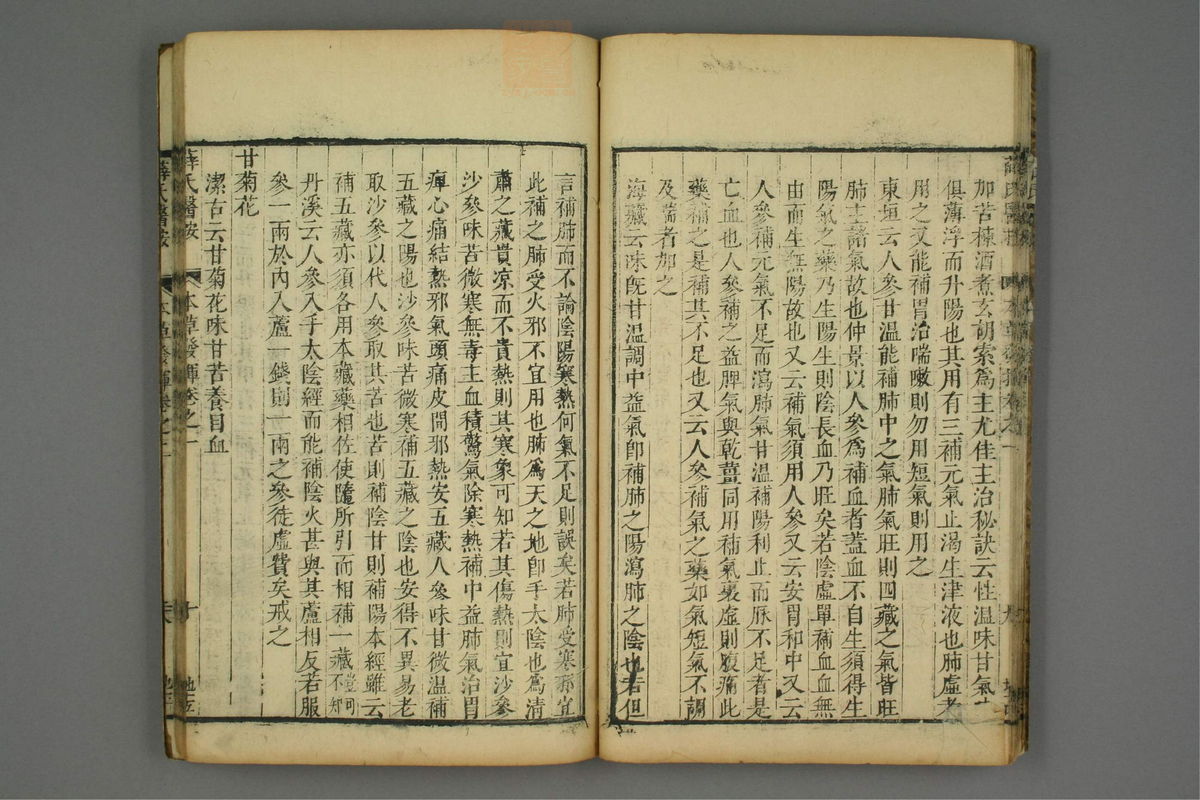 加苦楝酒煮玄胡索為主尤佳主治秘訣云性温味甘氣
俱薄浮而升陽也其用有三補元氣止渴生津液也肺虛者
用之又能補胃治喘嗽則勿用短氣則用之
東垣云人參甘温能補肺中之氣肺氣旺則四藏之氣皆旺
肺主諸氣故也仲景以人參為補血者蓋血不自生須得生
陽氣之藥乃生陽生則陰長血乃旺矣若陰虛單補血血無
由而生無陽故也又云補氣須用人參又云安胃和中又云
人參補元氣不足而瀉肺氣甘温補陽利止而脈不足者是
亡血也人參補之益脾氣與乾薑同用補氣裏虛則腹痛此
藥補之是補其不足也又云人參補氣之藥如氣短氣不調
及喘者加之
海藏云味既甘温調中益氣即補肺之陽瀉肺之陰也若但
言補肺而不論陰陽寒熱何氣不足則誤矣若肺受寒孫宜
此補之肺受火邪不宜用也肺為天之地即手太陰也為清
肅之藏貴凉而不貴熱則其寒象可知若其傷熱則宜沙參
沙參味苦微寒無毒主血積驚氣除寒熱補中益肺氣治胃
痺心痛結熱邪氣頭痛皮間邪熱安五藏人參味甘微温補
五藏之陽也沙參味苦微寒補五藏之陰也安得不異易老
取沙參以代人參取其苦也苦則補陰甘則補陽本經雖云
補五藏亦須各用本藏藥相佐使隨所引而相補一藏不可不知
丹溪云人參入手太陰經而能補陰火甚與其蘆相反若服
參一兩於內入蘆一錢則一兩之參徒虛費矣戒之
甘菊花
潔古云甘菊花味甘苦養目血
薛氏醫按 本草發揮卷之一